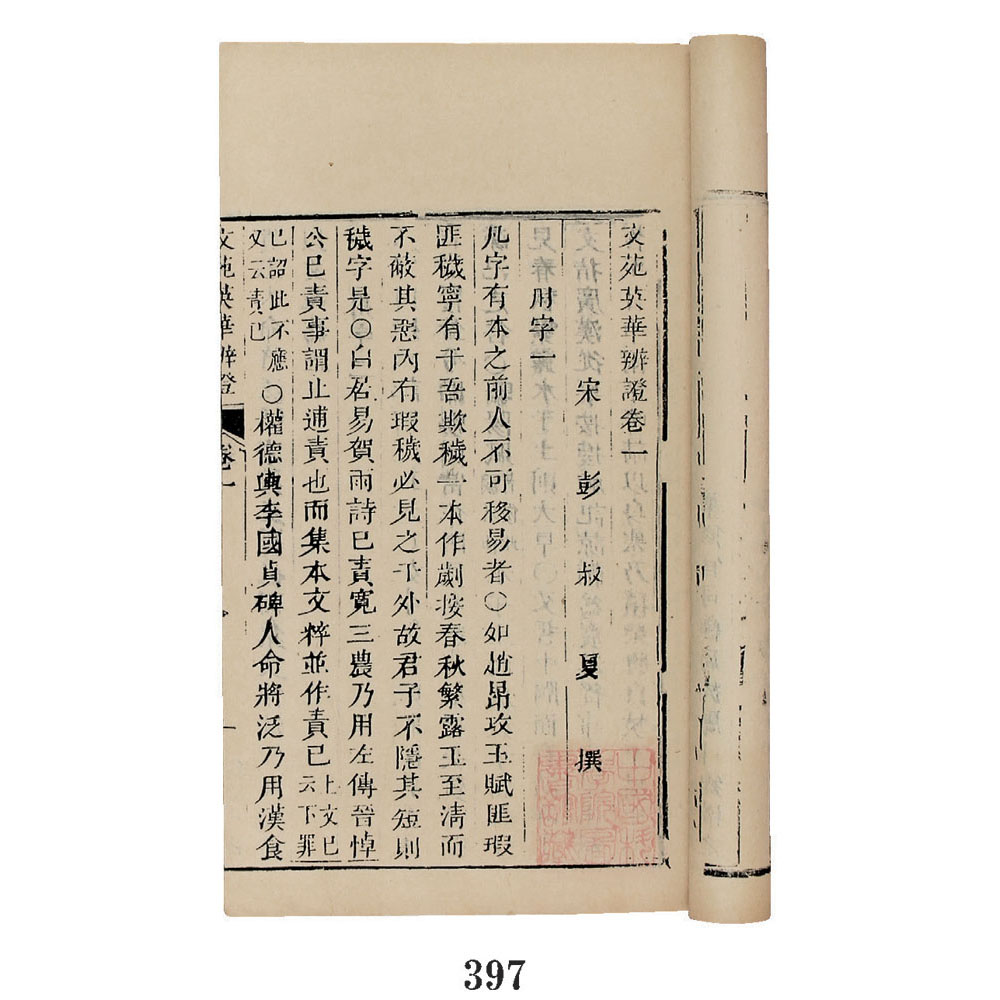 文苑英華辨證卷一
宋 彭 叔 夏 撰
用字一
凡字有本之前人不可移易者○如趙昂攻玉賦匪瑕
匪穢寧有于吾欺穢一本作劌按春秋繁露玉至清而
不蔽其惡內有瑕穢必見之于外故君子不隱其短則
穢字是○白居易賀雨詩已責寬三農乃用左傳晉悼
公已責事謂止逋責也而集本文粹並作責已上文已
云下罪
已詔此不應
又云責已
○權德輿李國貞碑人命將泛乃用漢食
文苑英華辨證
卷一
一
397